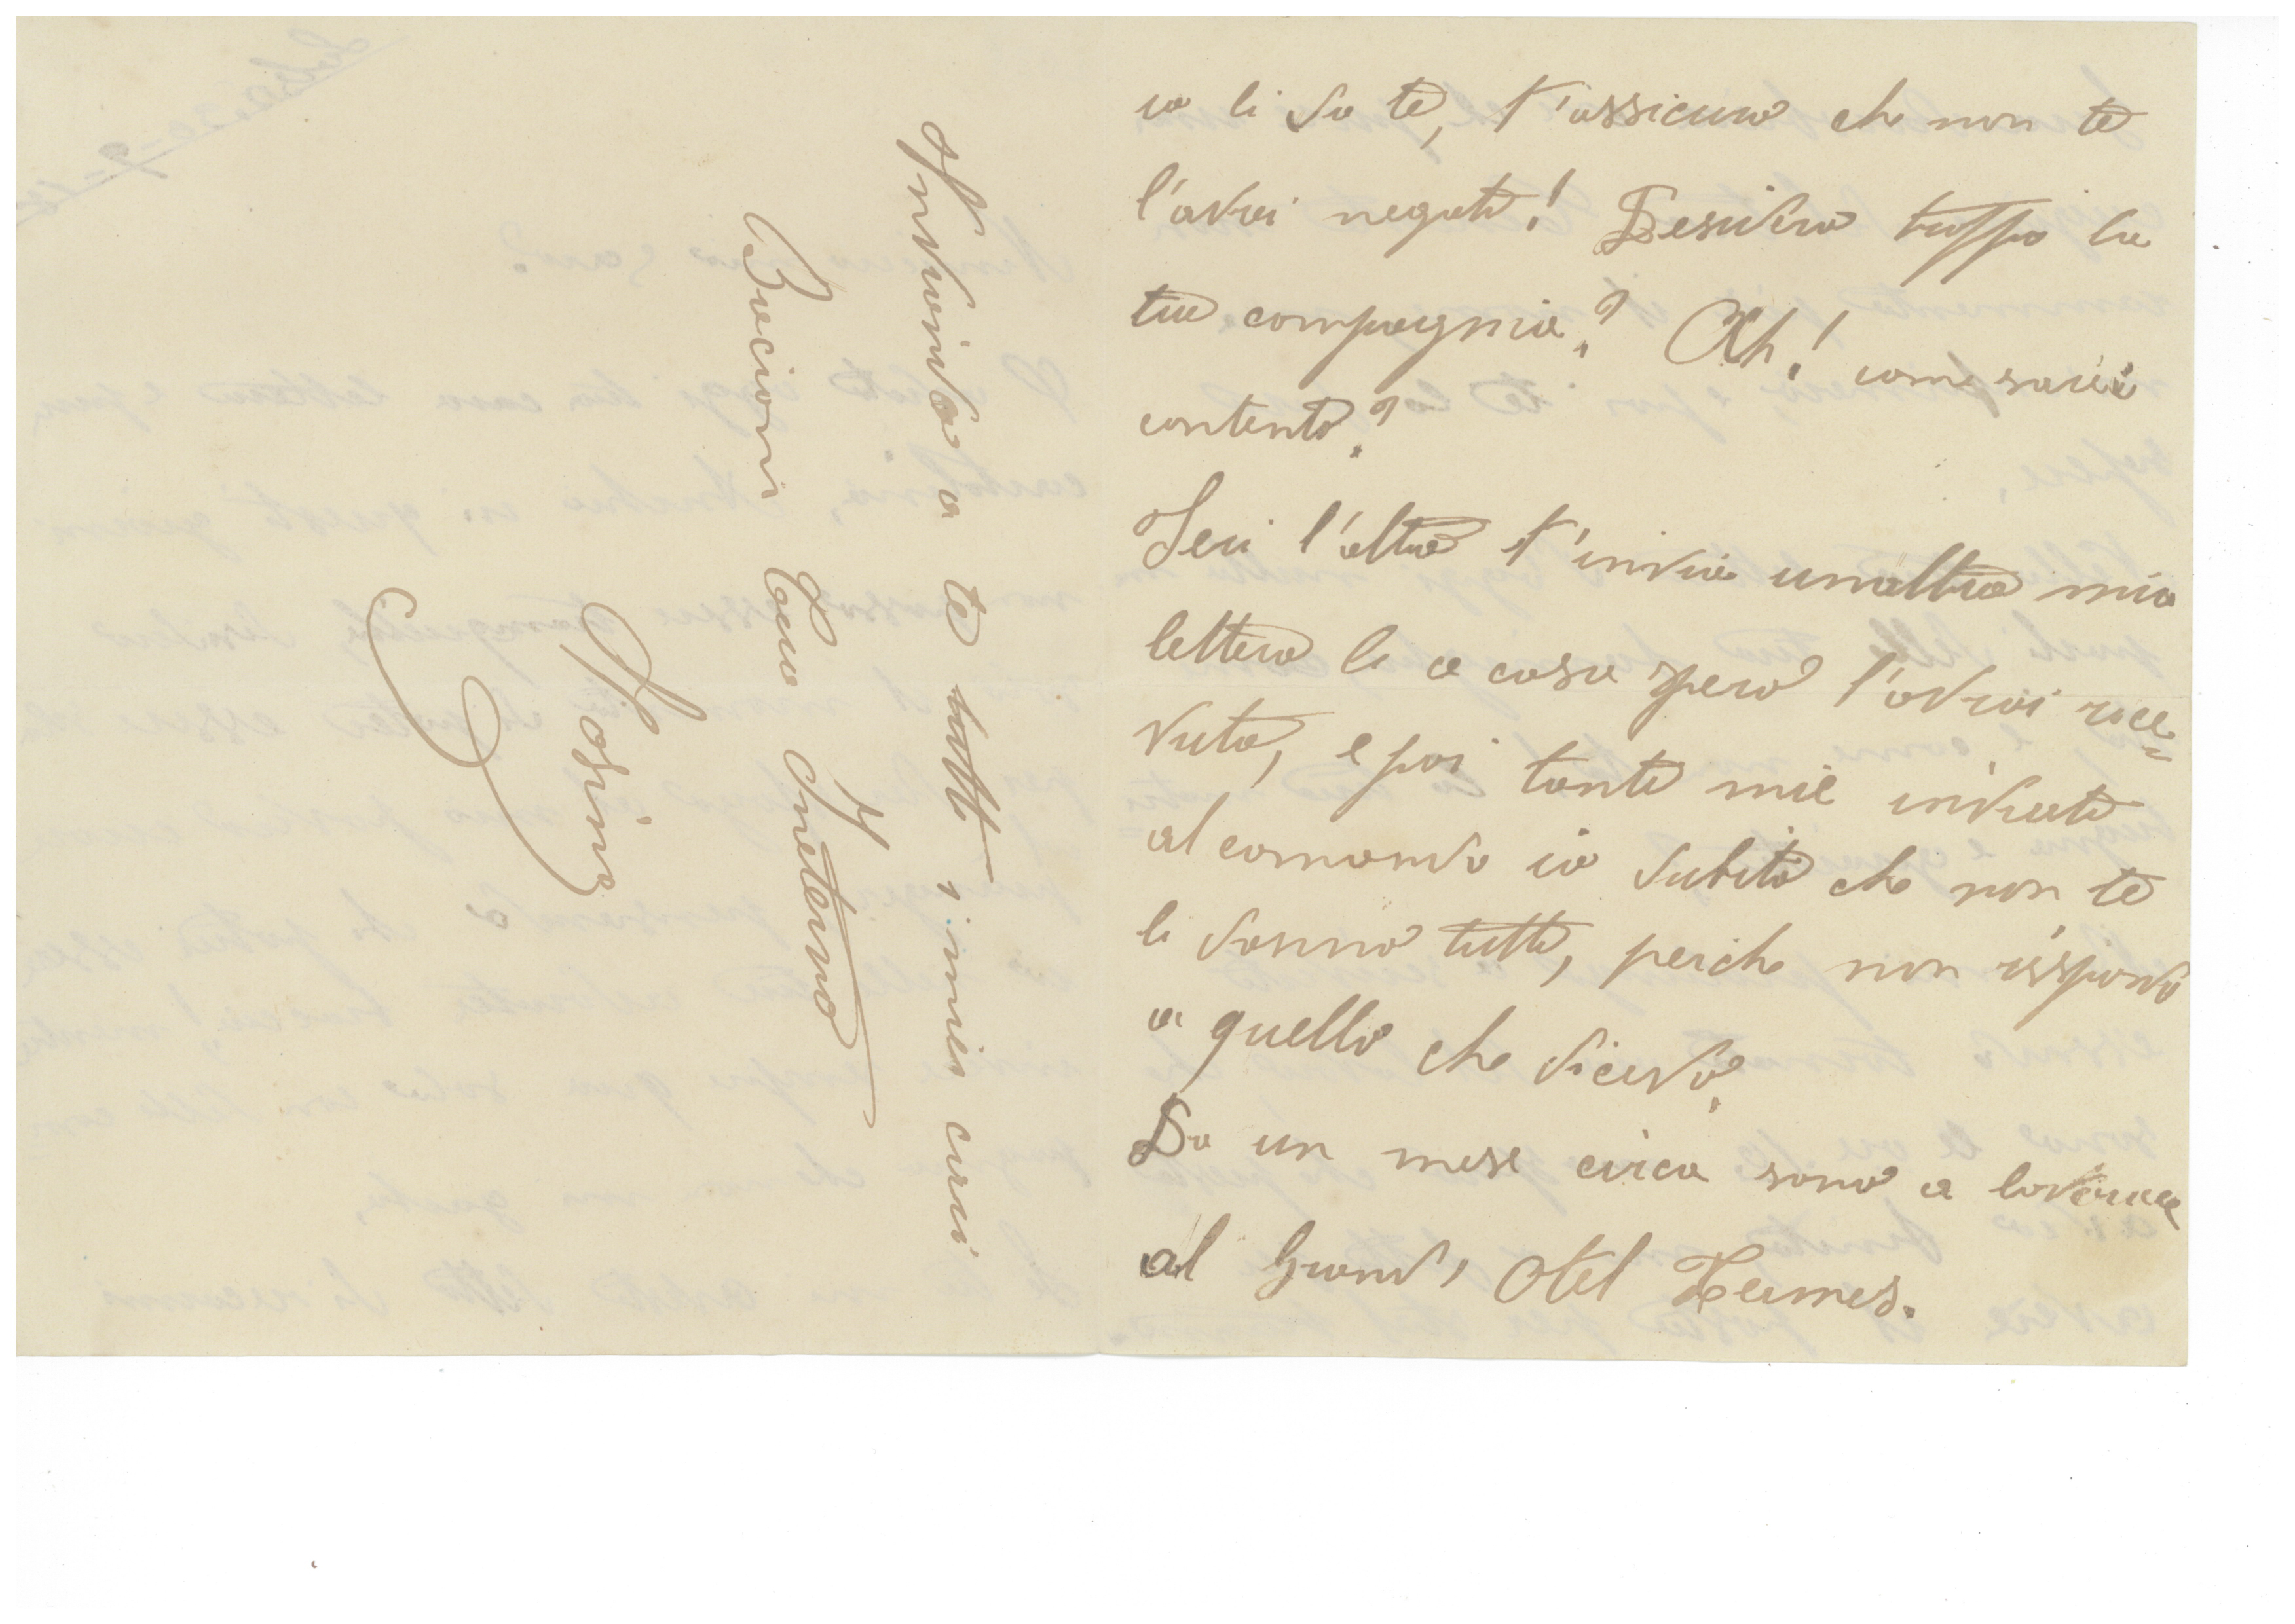 io li da te, t'assicuro che non te
l'avrei negato! Desidero troppo la
tua compagnia? Ah! come sarei
contento?
Ieri l'altro t'inviai unaltra mia
lettera li a casa spero l'avrai rice=
vuta, e poi tante mie inviate
al comando io dubito che non te
li danno tutti, perche non rispondi
a quello che dicevo.
Da un mese circa sono a lavorare
al Grand, Otel Termes.
Inviando a te tutti i miei cari
Bacioni tuo Ineterno